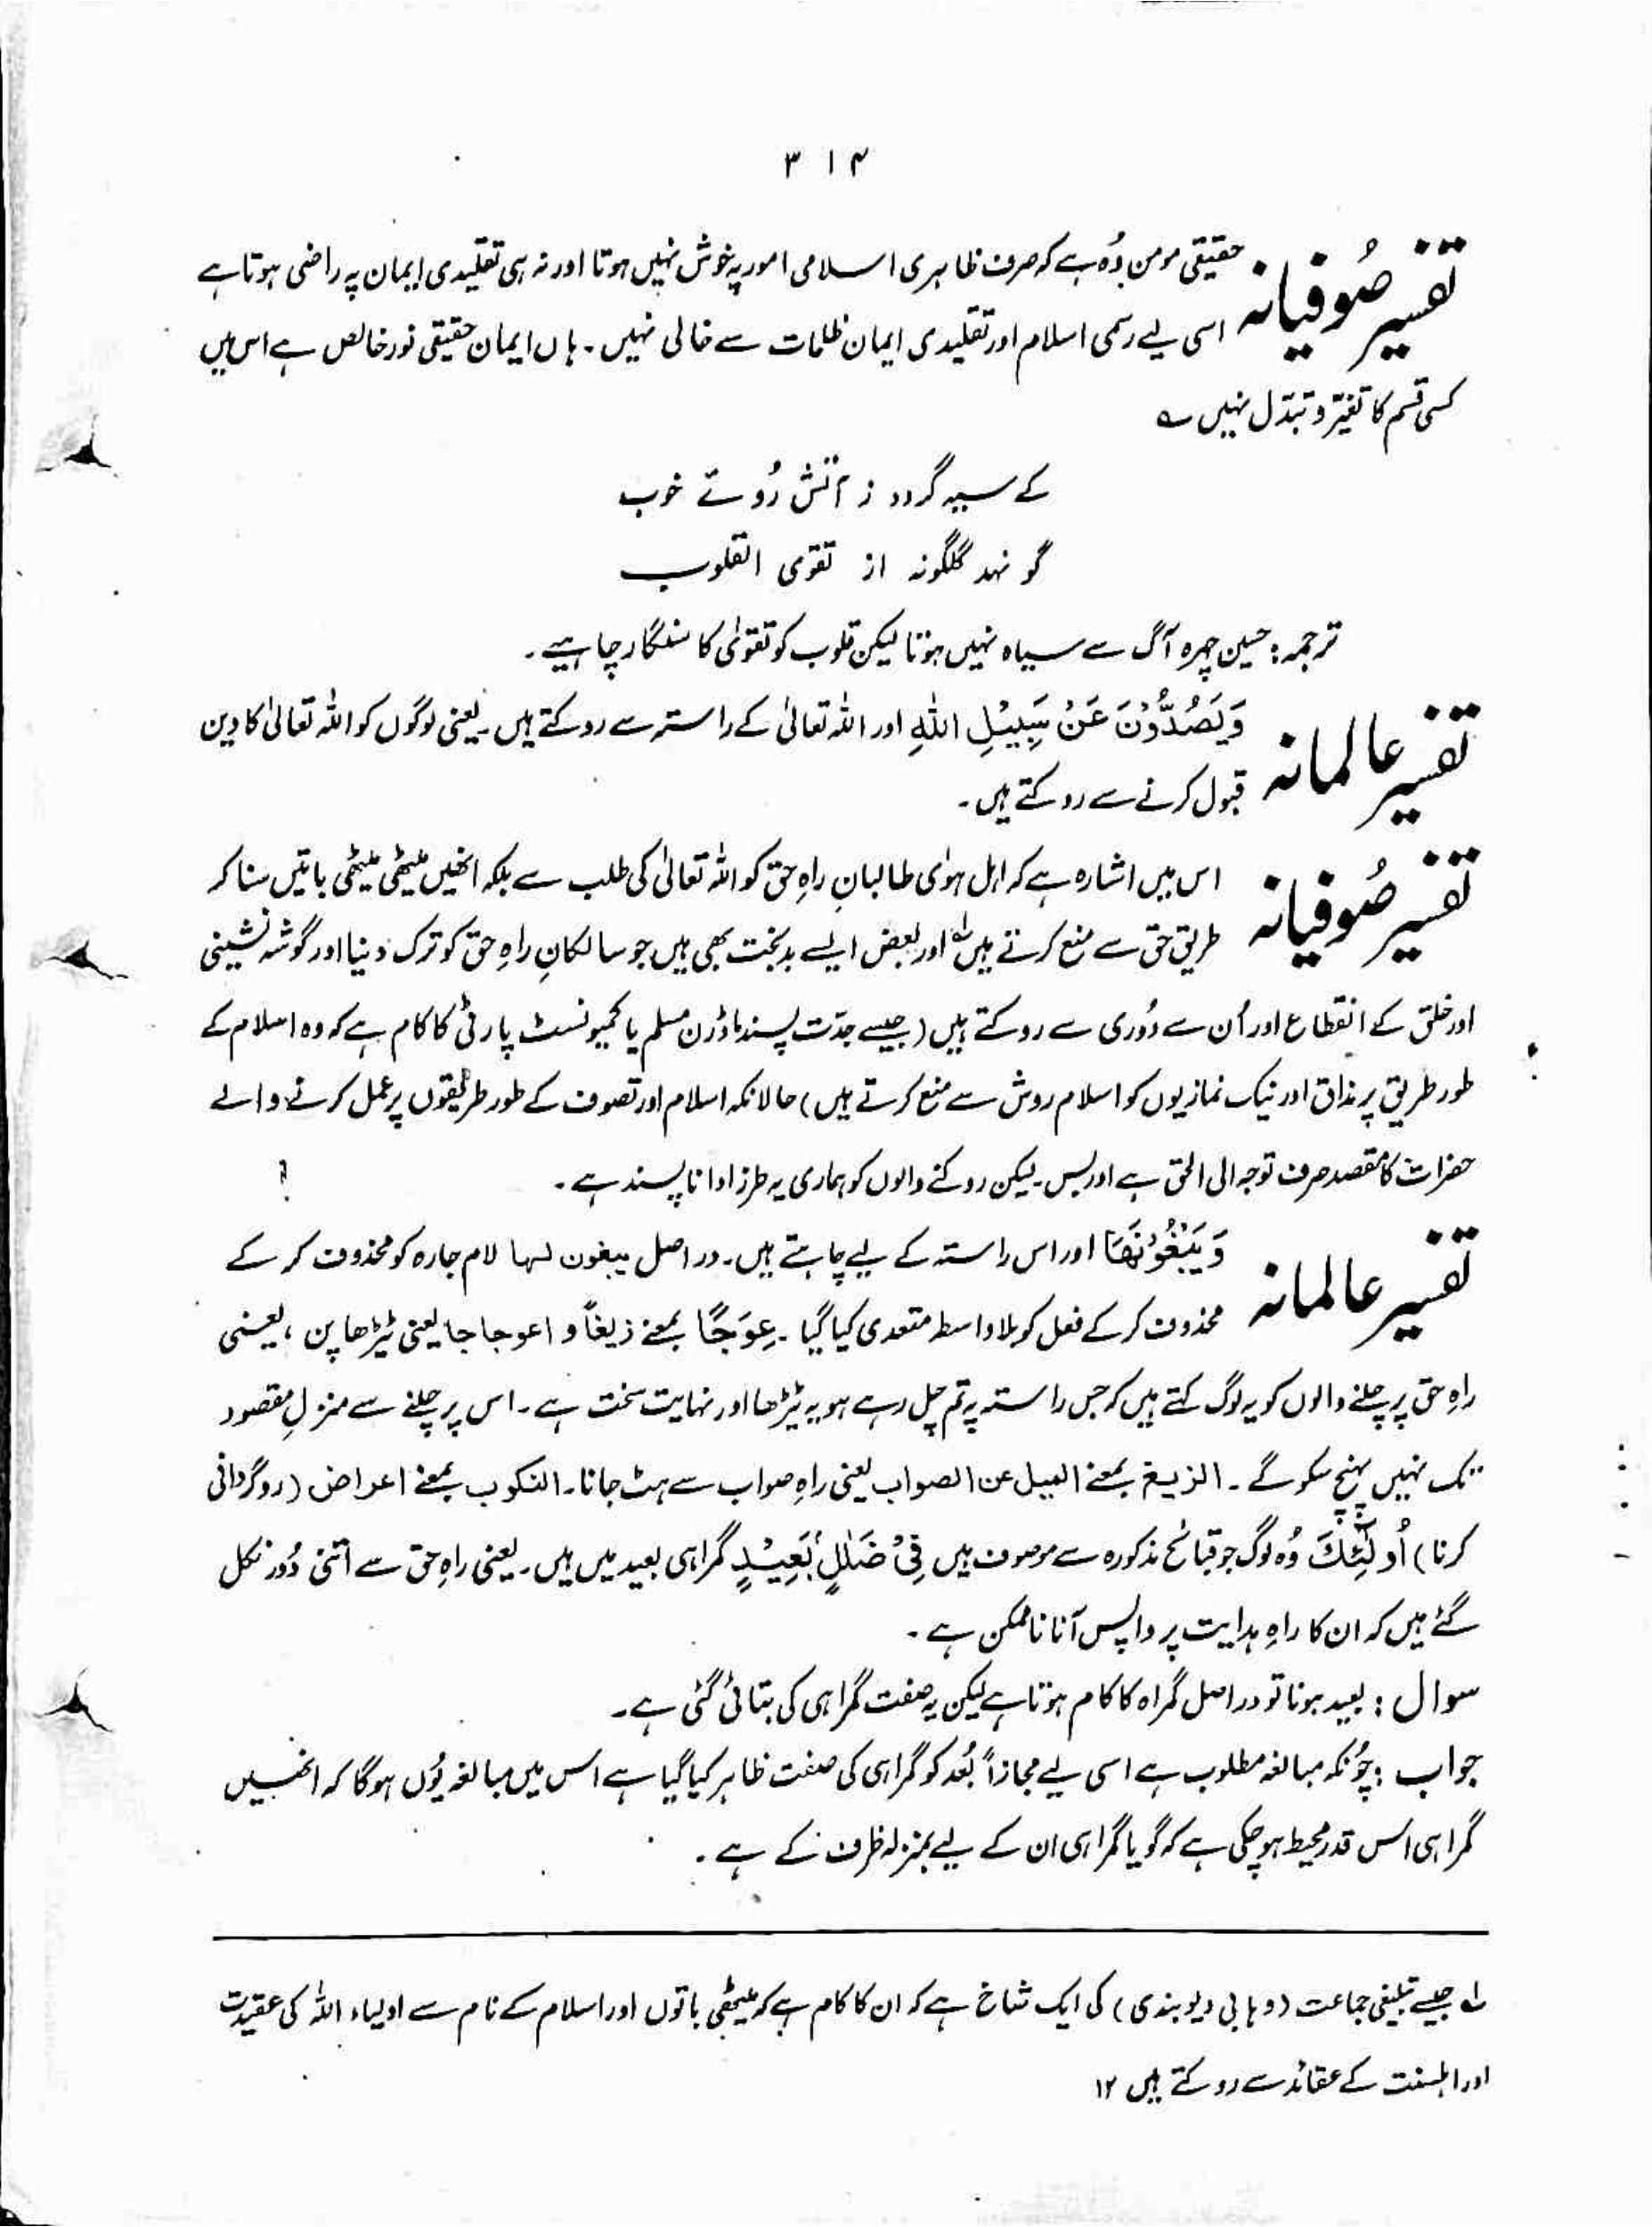 ۳۱۴
تفسیر صُوفیانہ حقیقی مومن وُہ ہے کہ صرف ظاہری اسلامی امور پہ خوش نہیں ہوتا اور نہ ہی تقلیدی ایمان پہ راضی ہوتا ہے
اسی لیے رسمی اسلام اور تقلیدی ایمان ظلمات سے خالی نہیں۔ ہاں ایمان حقیقی نور خالص ہے اس میں
کسی قسم کا تغیّر و تبدّل نہیں ؎
کے سیہ گردد ز آتش رُوئے خوب
گو نہد گلگونہ از تقوی القلوب
ترجمہ: حسین چہرہ آگ سے سیاہ نہیں ہوتا لیکن قلوب کو تقوٰی کا سنگار چاہیے۔
تفسیر عالمانہ وَیَصُدُّوْنَ عَنْ سَبِیْلِ اللّٰہِ اور اللہ تعالیٰ کے راستہ سے روکتے ہیں۔ یعنی لوگوں کو اللہ تعالیٰ کا دین
قبول کرنے سے روکتے ہیں۔
تفسیر صُوفیانہ اس میں اشارہ ہے کہ اہل ہوٰی طالبانِ راہِ حق کو اللہ تعالیٰ کی طلب سے بلکہ انھیں میٹھی میٹھی باتیں سنا کر
طریق حق سے منع کرتے ہیں لہ اور بعض ایسے بدبخت بھی ہیں جو سالکانِ راہِ حق کو ترک دنیا اور گوشہ نشینی
اور خلق کے انقطاع اور اُن سے دُوری سے روکتے ہیں (جیسے جدّت پسند ماڈرن مسلم یا کمیونسٹ پارٹی کا کام ہے کہ وہ اسلام کے
طور طریق پر مذاق اور نیک نمازیوں کو اسلام روش سے منع کرتے ہیں) حالانکہ اسلام اور تصوف کے طور طریقوں پر عمل کرنے والے
حضرات کا مقصد صرف توجہ الی الحق ہے اور بس۔ لیکن روکنے والوں کو ہماری یہ طرز ادا ناپسند ہے۔
تفسیر عالمانہ وَیَبْغُوْنَھَا اور اس راستہ کے لیے چاہتے ہیں۔ در اصل یبغون لہا لام جارہ کو محذوف کر کے
محذوف کر کے فعل کو بلا واسطہ متعدی کیا گیا۔ عِوَجًا بمعنے زیغاً و اعوجاجا یعنی ٹیڑھا پن ، یعنی
راہِ حق پر چلنے والوں کو یہ لوگ کہتے ہیں کہ جس راستہ پہ تم چل رہے ہو یہ ٹیڑھا اور نہایت سخت ہے۔ اس پر چلنے سے منزلِ مقصود
تک نہیں پہنچ سکو گے۔ الزیغ بمعنے المیل عن الصواب یعنی راہِ صواب سے ہٹ جانا۔ النکوب بمعنے اعراض (روگردانی
کرنا) اُولٰٓئِکَ وُہ لوگ جو قبائح مذکورہ سے موصوف ہیں فِیْ ضَلٰلٍ بَعِیْدٍ گمراہی بعید میں ہیں۔ یعنی راہِ حق سے اتنی دُور نکل
گئے ہیں کہ ان کا راہِ ہدایت پر واپس آنا ناممکن ہے۔
سوال : بعید ہونا تو دراصل گمراہ کا کام ہوتا ہے لیکن یہ صفت گمراہی کی بتائی گئی ہے۔
جواب : چُونکہ مبالغہ مطلوب ہے اسی لیے مجازاً بُعد کو گمراہی کی صفت ظاہر کیا گیا ہے اس میں مبالغہ یُوں ہوگا کہ انھیں
گمراہی اس قدر محیط ہو چکی ہے کہ گویا گمراہی ان کے لیے بمنزلہ ظرف کے ہے۔
لہ جیسے تبلیغی جماعت (وہابی دیوبندی) کی ایک شاخ ہے کہ ان کا کام ہے کہ میٹھی باتوں اور اسلام کے نام سے اولیاء اللہ کی عقیدت
اور اہلسنت کے عقائد سے روکتے ہیں ۱۲